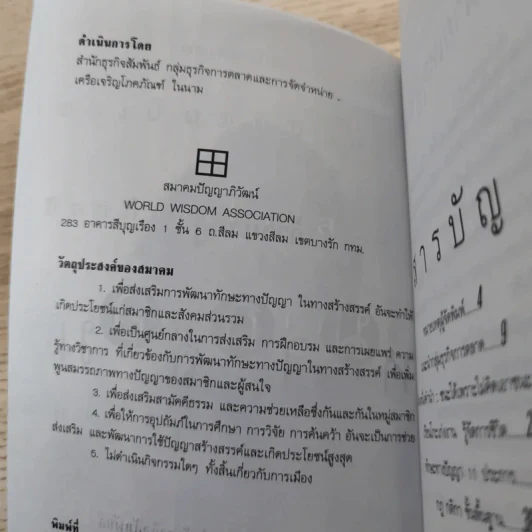 ดำเนินการโดย
สำนักธุรกิจสัมพันธ์ กลุ่มธุรกิจการตลาดและการจัดจำหน่าย
เครือเจริญโภคภัณฑ์ ในนาม
สมาคมปัญญาภิวัฒน์
WORLD WISDOM ASSOCIATION
283 อาคารสีบุญเรือง 1 ชั้น 6 ถ.สีลม แขวงสีลม เขตบางรัก กทม.
วัตถุประสงค์ของสมาคม
1. เพื่อส่งเสริมการพัฒนาทักษะทางปัญญา ในทางสร้างสรรค์ อันจะทำให้
เกิดประโยชน์แก่สมาชิกและสังคมส่วนรวม
2. เพื่อเป็นศูนย์กลางในการส่งเสริม การฝึกอบรม และการเผยแพร่ ความ
รู้ทางวิชาการ ที่เกี่ยวข้องกับการพัฒนาทักษะทางปัญญาในทางสร้างสรรค์ เพื่อเพิ่ม
พูนสมรรถภาพทางปัญญาของสมาชิกและผู้สนใจ
3. เพื่อส่งเสริมสามัคคีธรรม และความช่วยเหลือซึ่งกันและกันในหมู่สมาชิก
4. เพื่อให้การอุปถัมภ์ในการศึกษา การวิจัย การค้นคว้า อันจะเป็นการช่วย
ส่งเสริม และพัฒนาการใช้ปัญญาสร้างสรรค์และเกิดประโยชน์สูงสุด
5. ไม่ดำเนินกิจกรรมใดๆ ทั้งสิ้นเกี่ยวกับการเมือง
พิมพ์ที่
สารบัญ
4
9